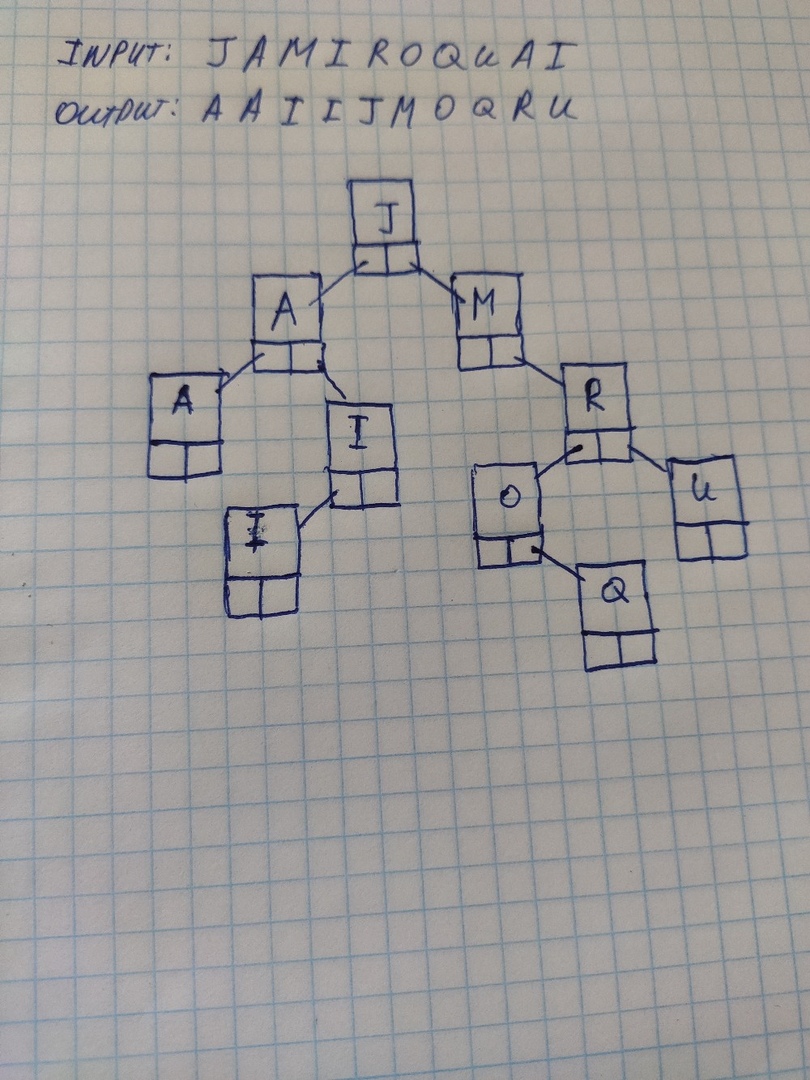 INPUT: JAMIROQUAI
OUTPUT: AAIIJMOQRU
J
A M
A I R
I O U
Q